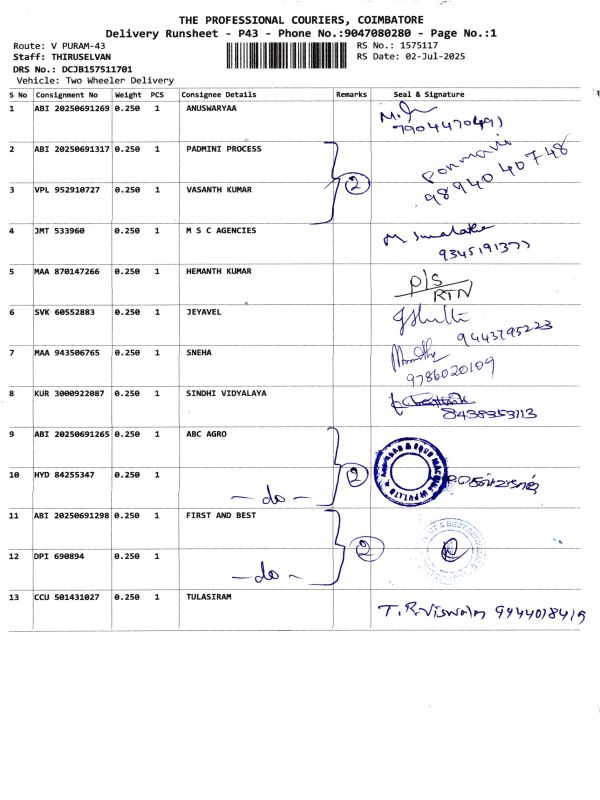 THE PROFESSIONAL COURIERS, COIMBATORE
Delivery Runsheet - P43 - Phone No.:9047080280 - Page No.:1
Route: V PURAM-43
Staff: THIRUSELVAN
DRS No.: DCJB157511701
Vehicle: Two Wheeler Delivery
RS No.: 1575117
RS Date: 02-Jul-2025
S No Consignment No Weight PCS Consignee Details Remarks Seal & Signature
1 ABI 20250691269 0.250 1 ANUSWARYAA
2 ABI 20250691317 0.250 1 PADMINI PROCESS
2
9894040748
3 VPL 952910727 0.250 1 VASANTH KUMAR
4 JMT 533960 0.250 1 M S C AGENCIES
9345191377
5 MAA 870147266 0.250 1 HEMANTH KUMAR
P/S
RTN
6 SVK 60552883 0.250 1 JEYAVEL
9443795223
7 MAA 943506765 0.250 1 SNEHA
9786020109
8 KUR 3000922087 0.250 1 SINDHI VIDYALAYA
8438353113
9 ABI 20250691265 0.250 1 ABC AGRO
10 HYD 84255347 0.250 1
- do -
2
11 ABI 20250691298 0.250 1 FIRST AND BEST
2
12 DPI 690894 0.250 1
- do -
13 CCU 501431027 0.250 1 TULASIRAM
T.R.Viswam 9444018419